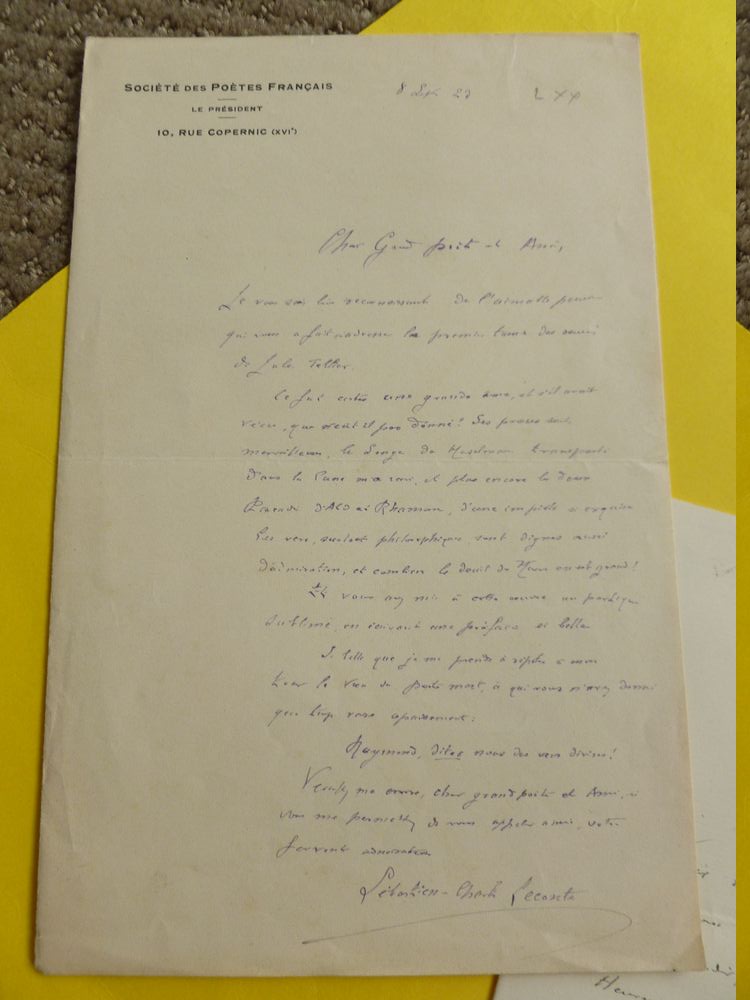 SOCIÉTÉ DES POÈTES FRANÇAIS
LE PRÉSIDENT
10, RUE COPERNIC (XVIᵉ)
8 23
Cher Grand poète et Ami,
Je vous suis bien reconnaissant de l'aimable pensée
qui vous a fait adresser le premier tome des
de Jules Tellier.
Ce fut une grande âme, et s'il avait
vécu, que n'eut-il pas donné! Ses proses sont
merveilleuses, le Songe de
dans la lune et plus encore les deux
d'une impiété si exquise
Ses vers, surtout philosophiques sont dignes aussi
d'admiration, et combien le deuil de est grand!
Et vous avez mis à cette œuvre un portique
sublime en écrivant une préface si belle
Si belle que je me prends à répéter à mon
tour le vœu du poète mort, à qui vous n'avez donné
que trop rare apaisement:
Raymond, dites nous des vers divins!
Veuillez me croire, cher grand poète et Ami, si
vous me permettez de vous appeler ainsi, votre
fervent admirateur
Sébastien-Charles Leconte